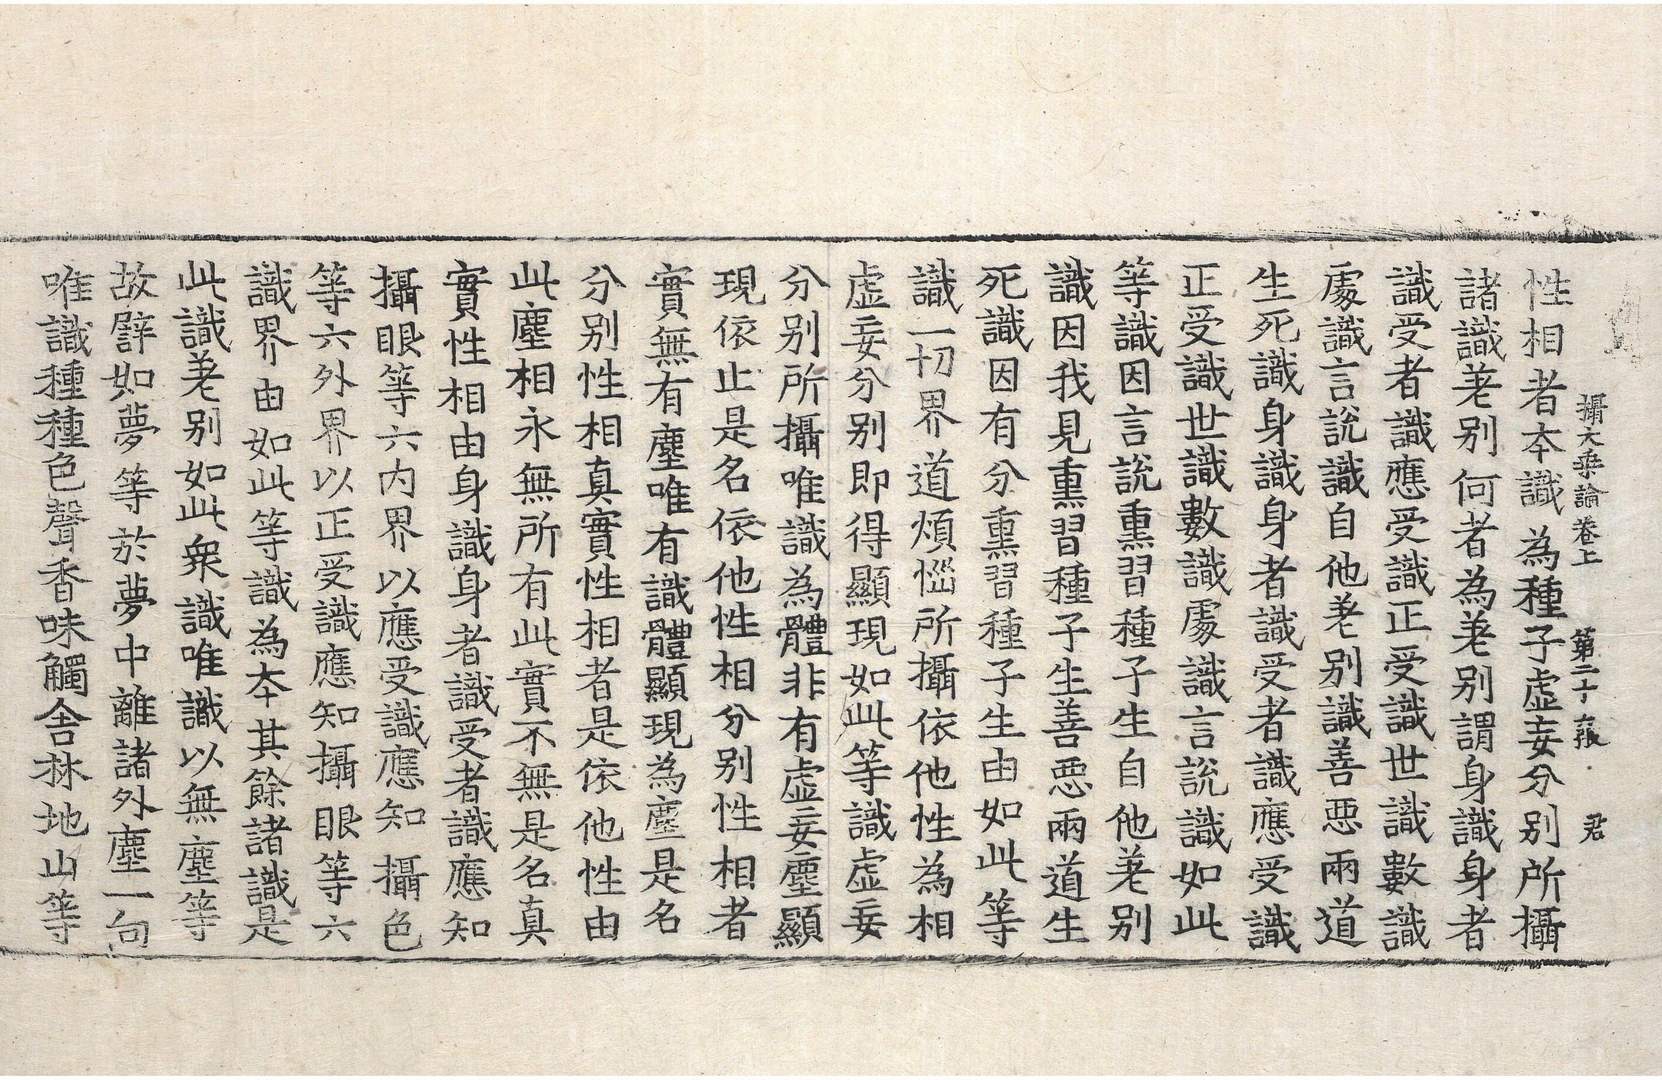 攝大乘論卷上 第二十張 君
性相者本識為種子虛妄分別所攝
諸識差別何者為差別謂身識身者
識受者識應受識正受識世識數識
處識言說識自他差別識善惡兩道
生死識身識身者識受者識應受識
正受識世識數識處識言說識如此
等識因言說熏習種子生自他差別
識因我見熏習種子生善惡兩道生
死識因有分熏習種子生由如此等
識一切界道煩惱所攝依他性為相
虛妄分別即得顯現如此等識虛妄
分別所攝唯識為體非有虛妄塵顯
現依止是名依他性相分別性相者
實無有塵唯有識體顯現為塵是名
分別性相真實性相者是依他性由
此塵相永無所有此實不無是名真
實性相由身識身者識受者識應知
攝眼等六內界以應受識應知攝色
等六外界以正受識應知攝眼等六
識界由如此等識為本其餘諸識是
此識差別如此衆識唯識以無塵等
故譬如夢等於夢中離諸外塵一向
唯識種種色聲香味觸舍林地山等